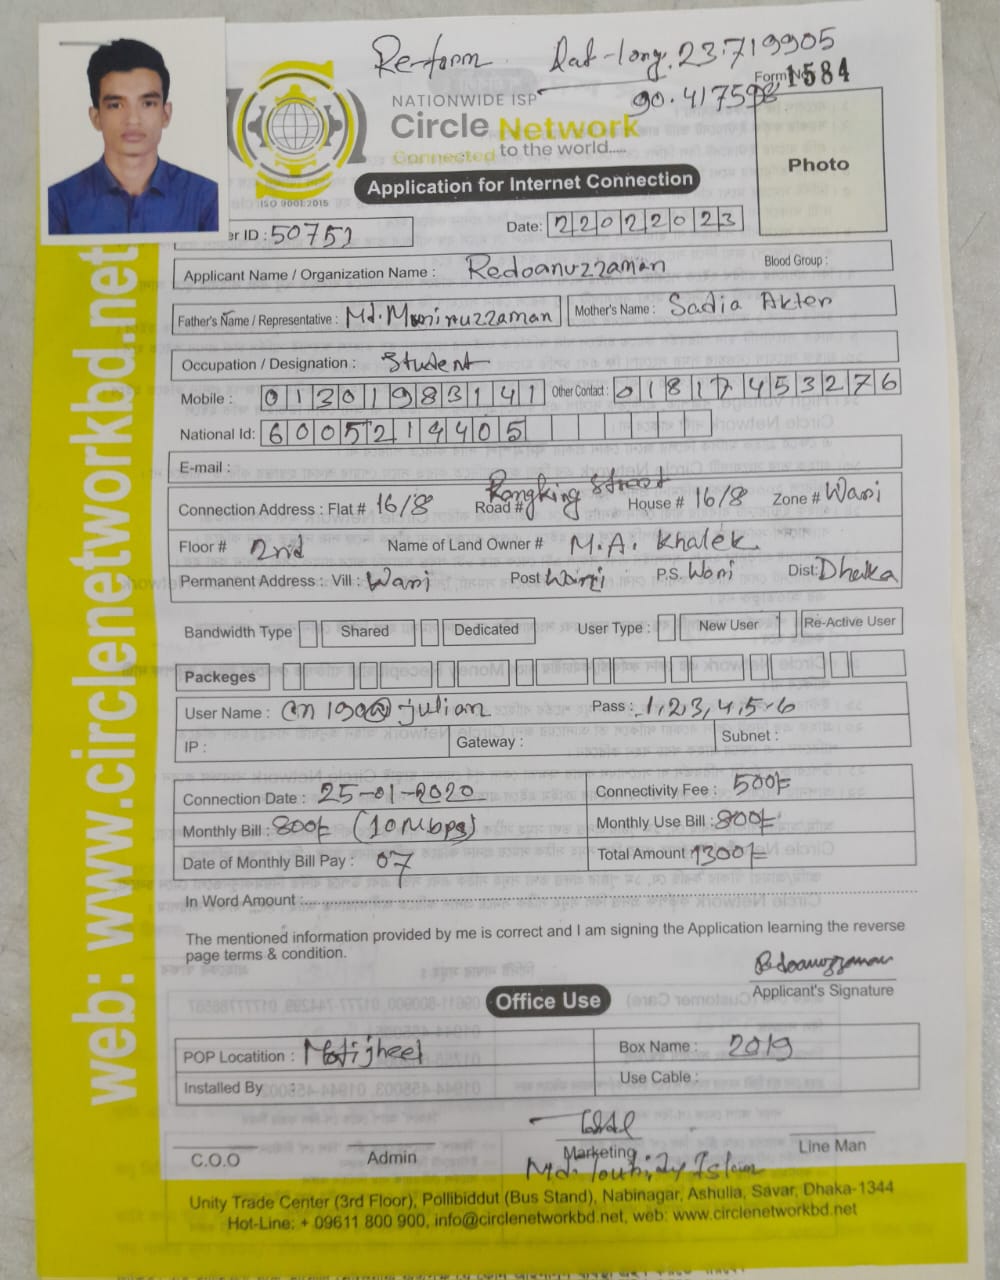 Re-form Lat-long: 23.719905
90.417598
Form No 1584
NATIONWIDE ISP
Circle Network
Connected to the world.....
ISO 9001:2015
Application for Internet Connection
Photo
er ID : 50751 Date: 22022023
Applicant Name / Organization Name : Redoanuzzaman Blood Group :
Father's Name / Representative : Md. Moniruzzaman Mother's Name : Sadia Akter
Occupation / Designation : Student
Mobile : 01301983141 Other Contact : 01817453276
National Id: 6005219405
E-mail :
Connection Address : Flat # 16/8 Road # Rangking Street House # 16/8 Zone # Wari
Floor # 2nd Name of Land Owner # M.A. Khalek
Permanent Address : Vill : Wari Post Wari P.S. Wari Dist: Dhaka
Bandwidth Type Shared Dedicated User Type : New User Re-Active User
Packeges
User Name : julian Pass : 1,2,3,4,5,6
IP : Gateway : Subnet :
Connection Date : 25-01-2020 Connectivity Fee : 500/-
Monthly Bill : 800/- (10Mbps) Monthly Use Bill : 800/-
Date of Monthly Bill Pay : 07 Total Amount 1300/-
In Word Amount :
The mentioned information provided by me is correct and I am signing the Application learning the reverse
page terms & condition.
Redoanuzzaman
Applicant's Signature
Office Use
POP Locatition : Motijheel Box Name : 2019
Installed By : Use Cable :
C.O.O Admin Marketing Line Man
Md. Islam
Unity Trade Center (3rd Floor), Pollibiddut (Bus Stand), Nabinagar, Ashulla, Savar, Dhaka-1344
Hot-Line: + 09611 800 900, info@circlenetworkbd.net, web: www.circlenetworkbd.net
web: www.circlenetworkbd.net